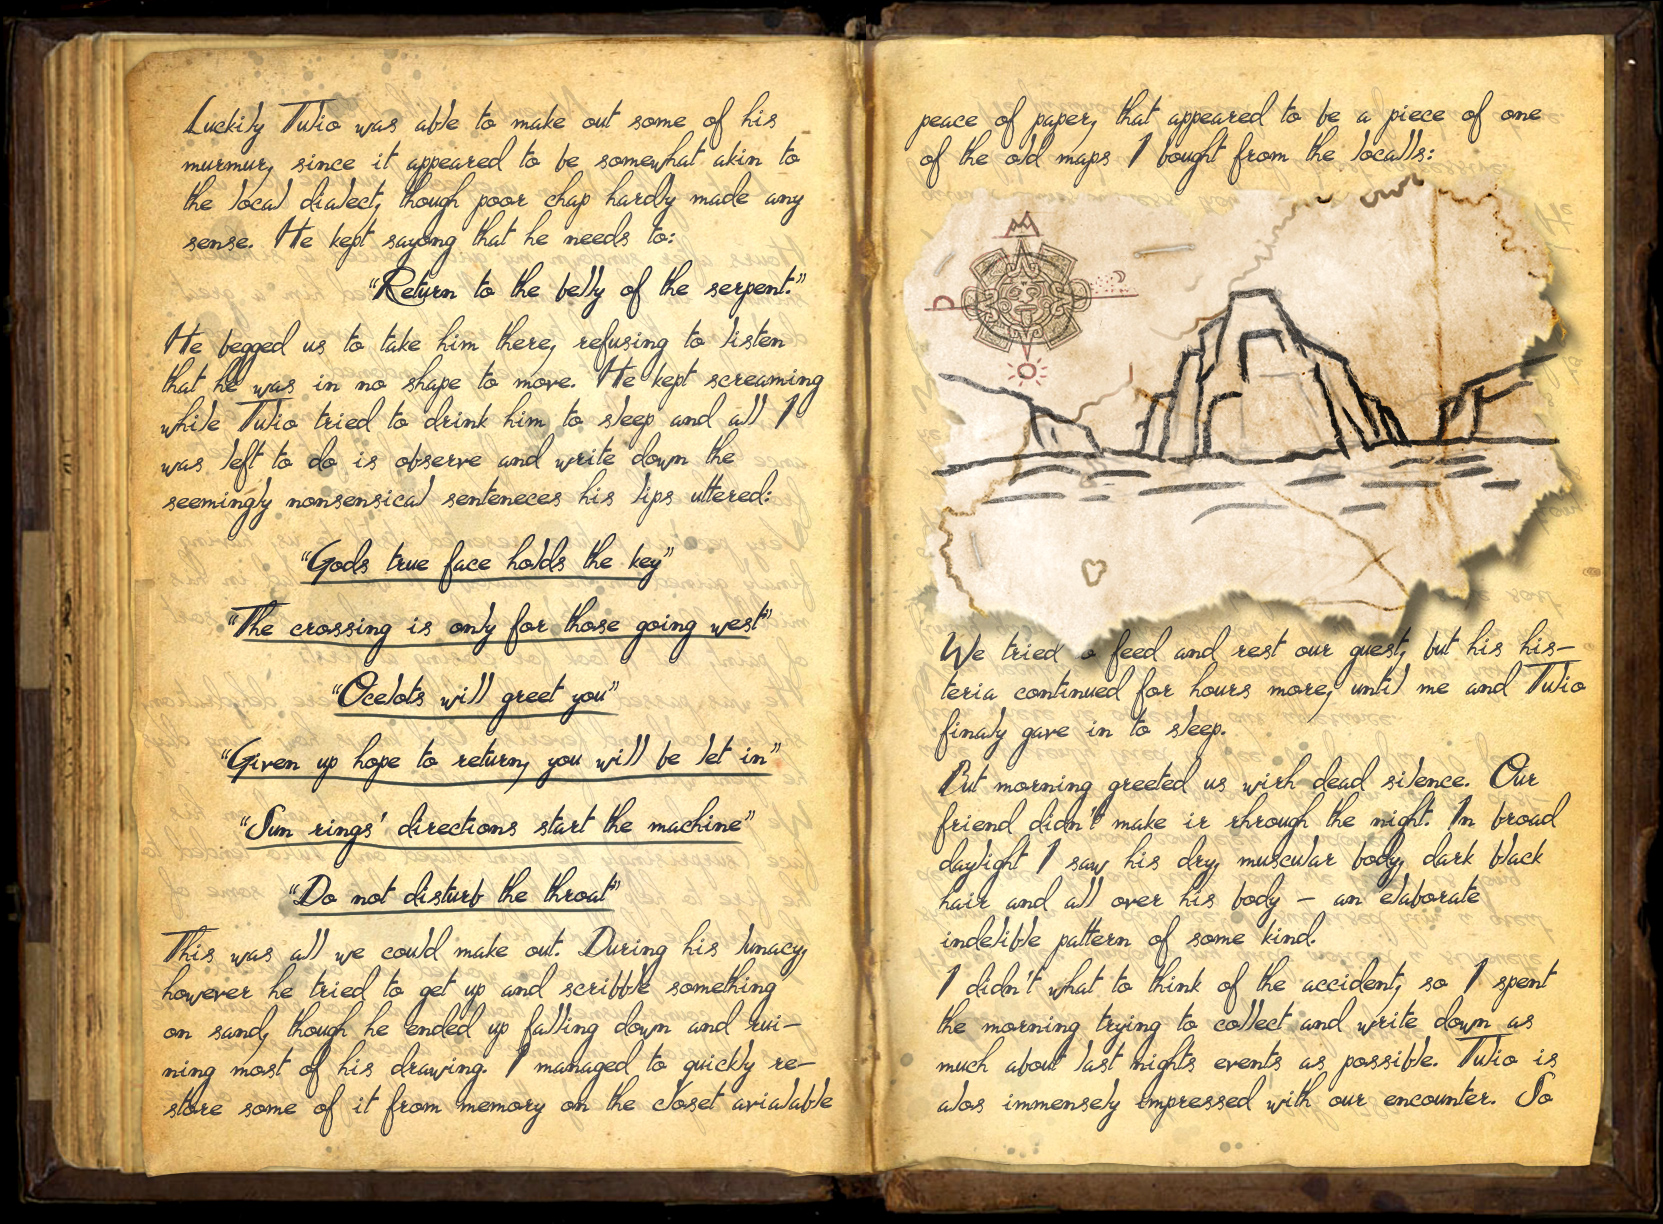 Luckily Tulio was able to make out some of his
murmur, since it appeared to be somewhat akin to
the local dialect, though poor chap hardly made any
sense. He kept sayong that he needs to:
"Return to the belly of the serpent."
He begged us to take him there, refusing to listen
that he was in no shape to move. He kept screaming
while Tulio tried to drink him to sleep and all I
was left to do is observe and write down the
seemingly nonsensical senteneces his lips uttered:
"Gods true face holds the key"
"The crossing is only for those going west"
"Ocelots will greet you"
"Given up hope to return, you will be let in"
"Sun rings' directions start the machine"
"Do not disturb the throat"
This was all we could make out. During his lunacy,
however he tried to get up and scribble something
on sand, though he ended up falling down and rui-
ning most of his drawing. I managed to quickly re-
store some of it from memory on the closet avialable
peace of paper, that appeared to be a piece of one
of the old maps I bought from the localls:
We tried o feed and rest our guest, but his his-
teria continued for hours more, until me and Tulio
finaly gave in to sleep.
But morning greeted us wirh dead silence. Our
friend didn't make ir rhrough the night. In broad
daylight I saw his dry, muscular body, dark black
hair and all over his body - an elaborate
indelible pattern of some kind.
I didn't what to think of the accident, so I spent
the morning trying to collect and write down as
much about last nights events as possible. Tulio is
alos immensely impressed with our encounter. So